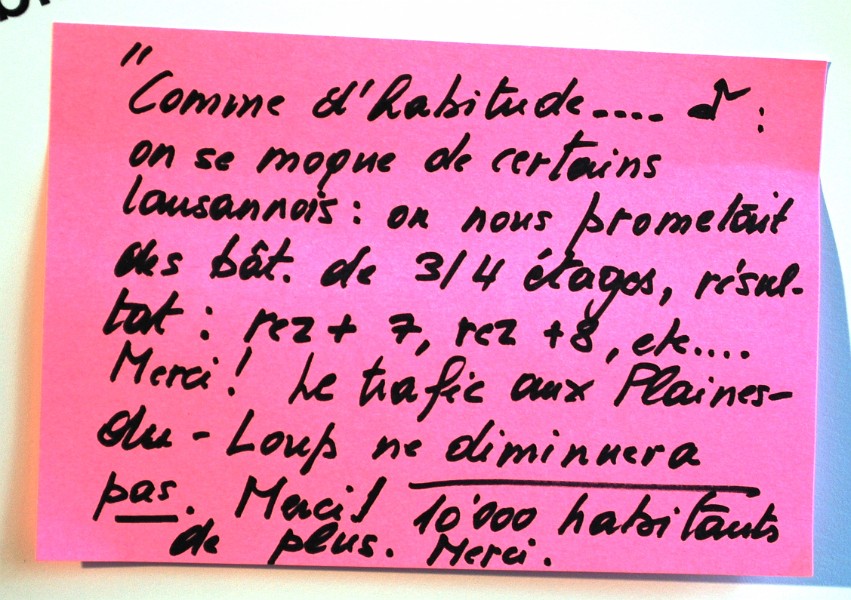 "Comme d'habitude.... ♪ :
on se moque de certains
lausannois : on nous promettait
des bât. de 3/4 étages, résul-
tat : rez + 7, rez +8, etc....
Merci ! Le trafic aux Plaines-
du-Loup ne diminuera
pas. Merci ! 10'000 habitants
de plus. Merci.